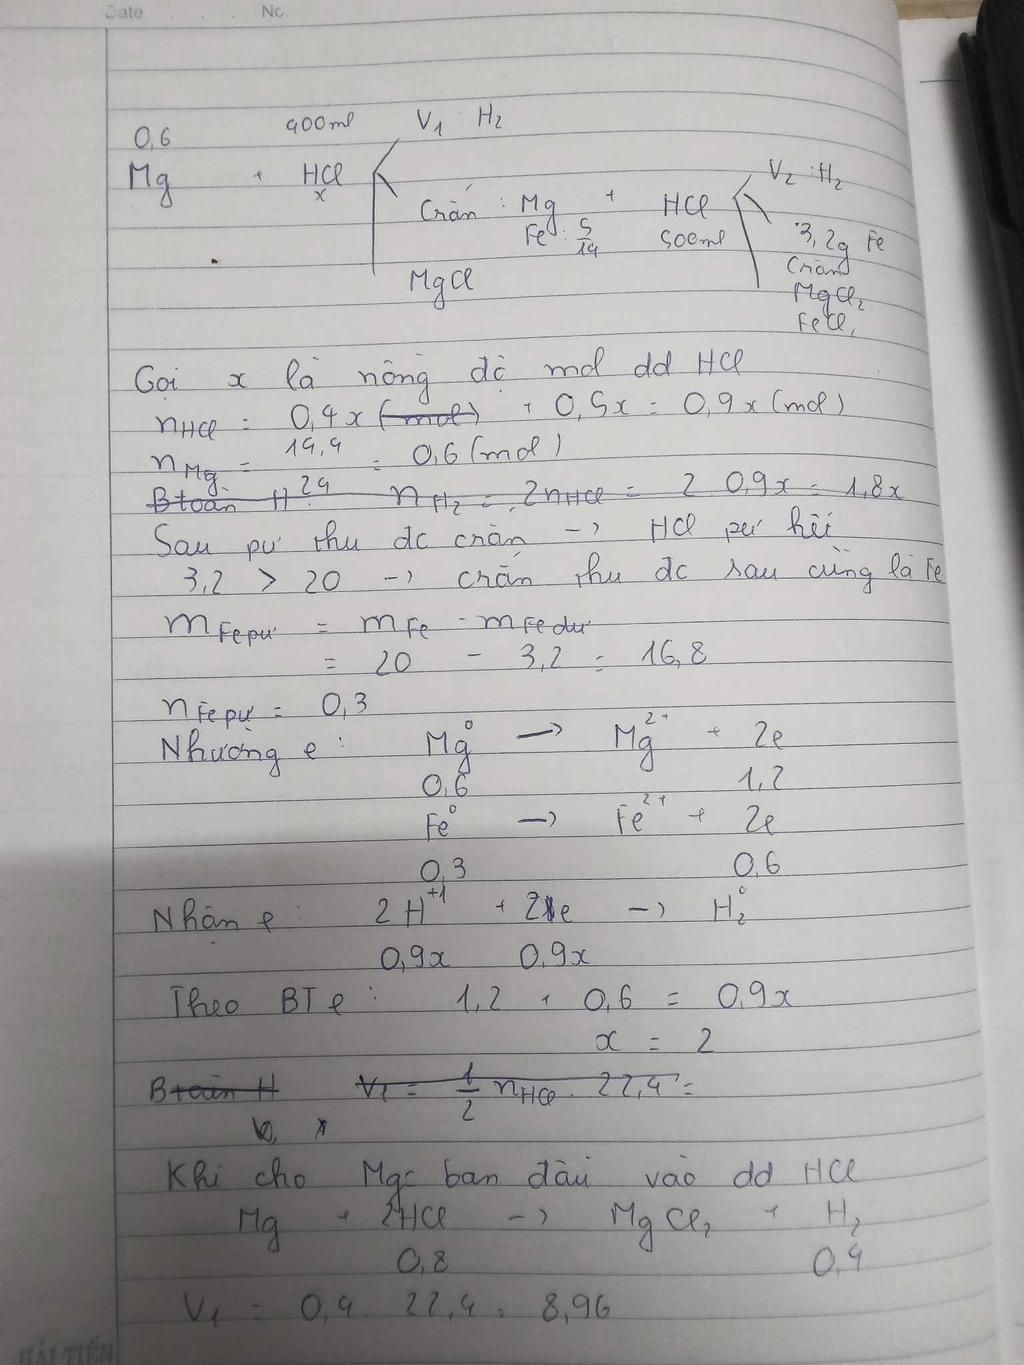 Date No.
0,6 400ml V1 H2
Mg + HCl V2 : H2
x Crắn : Mg + HCl
Fe : 5/14 500ml 3,2g Fe
MgCl Crắn
MgCl2
FeCl2
Gọi x là nồng độ mol dd HCl
nHCl = 0,4x (mol) + 0,5x = 0,9x (mol)
nMg = 14,4/24 = 0,6 (mol)
Btoàn H : nH2 = 2nHCl = 2 0,9x = 1,8x
Sau pư thu đc crắn → HCl pư hết
3,2 > 20 → crắn thu đc sau cùng là Fe
mFe pư = mFe - mFe dư
= 20 - 3,2 = 16,8
nFe pư = 0,3
Nhường e : Mg⁰ → Mg²⁺ + 2e
0,6 1,2
Fe⁰ → Fe²⁺ + 2e
0,3 0,6
Nhận e : 2H⁺¹ + 2e → H2⁰
0,9x 0,9x
Theo BT e : 1,2 + 0,6 = 0,9x
x = 2
Btoàn H V1 = 1/2 nHCl . 22,4 =
Khi cho Mg ban đầu vào dd HCl
Mg + 2HCl → MgCl2 + H2
0,8 0,4
V1 = 0,4 22,4 = 8,96
HẢI TIẾN